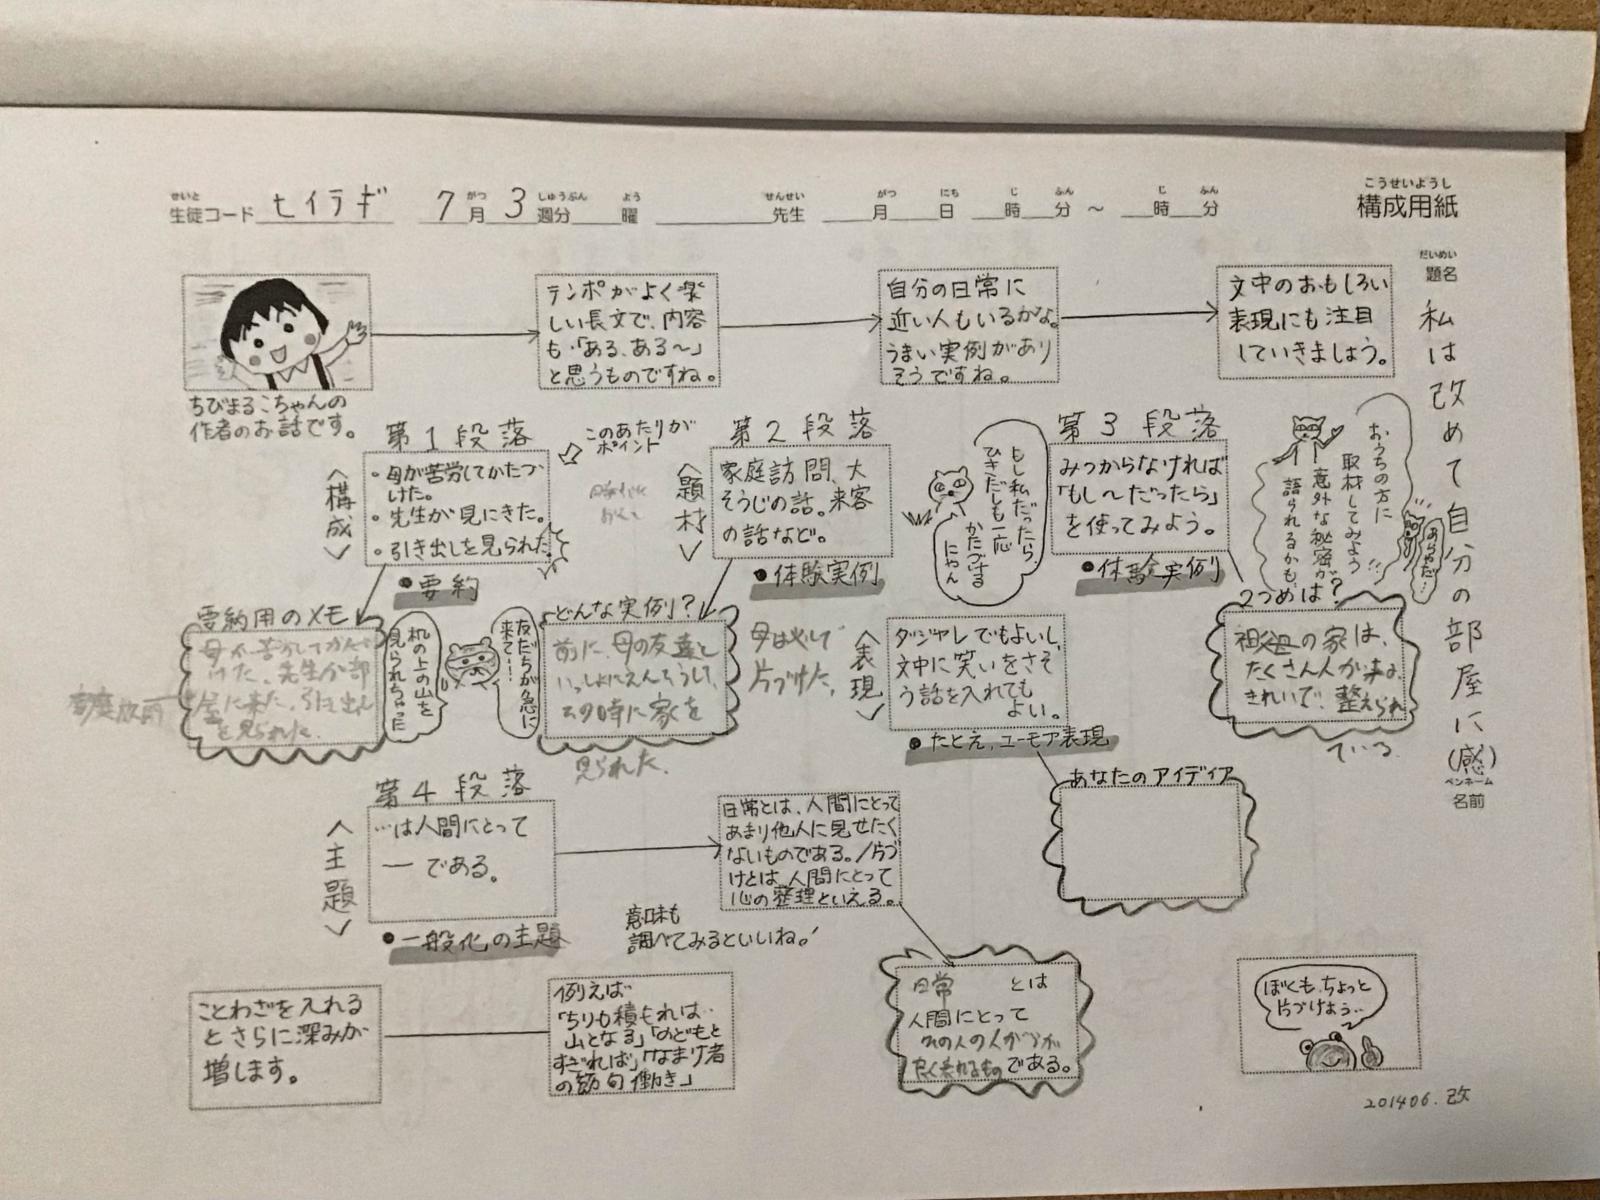 こうせいようし
構成用紙
せいと がつ しゅうぶん よう せんせい がつ にち じ ふん じ ふん
生徒コード セイラギ 7月3週分 曜 先生 月 日 時 分 ～ 時 分
だいめい
題名
私は改めて自分の部屋に(感)
ペンネーム
名前
ちびまるこちゃんの
作者のお話です。
テンポがよく楽
しい長文で、内容
も「ある、ある～」
と思うものですね。
自分の日常に
近い人もいるかな。
うまい実例があり
そうですね。
文中のおもしろい
表現にも注目
していきましょう。
第1段落
このあたりが
ポイント
＜構成＞
・母が苦労してかたづ
けた。
・先生が見にきた。
・引き出しを見られた。
●要約
要約用のメモ
母が苦労してかたづ
けた。先生が部
屋に来た。引き出し
を見られた。
机の上の山を
見られちゃった
第2段落
＜題材＞
家庭訪問、大
そうじの話。来客
の話など。
●体験実例
どんな実例？
友だちが急に
来て…！
前に、母の友達と
いっしょに
その時に家を
見られた。
母は必
片づけた。
第3段落
みつからなければ
「もし～だったら」
を使ってみよう。
●体験実例
もし私だったら、
ひきだしも一応
かたづける
にゃん
おうちの方に
取材してみよう
意外な秘密が
語られるかも…
2つめは？
祖父母の家は、
たくさん人が来る。
きれいで、整えられ
ている。
＜表現＞
ダジャレでもよいし、
文中に笑いをさそ
う話を入れても
よい。
●たとえ、ユーモア表現
あなたのアイディア
第4段落
＜主題＞
…は人間にとって
― である。
●一般化の主題
日常とは、人間にとって
あまり他人に見せたく
ないものである。/片づ
けとは、人間にとって
心の整理といえる。
意味も
調べてみるといいね！
日常 とは
人間にとって
その人の人
良く表れるもの である。
ことわざを入れる
とさらに深みが
増します。
例えば
「ちりも積もれば…
山となる」「のどもと
すぎれば」「なまけ者
の節句働き」
ぼくも、ちょっと
片づけよう…
201406.改